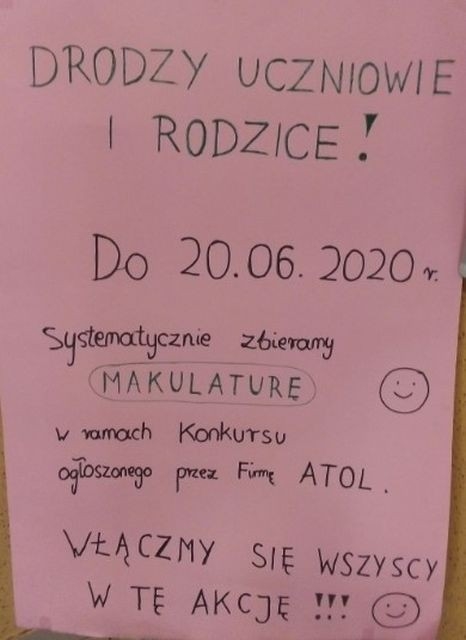 DRODZY UCZNIOWIE
I RODZICE!
Do 20.06.2020 r.
Systematycznie zbieramy
MAKULATURĘ
w ramach Konkursu
ogłoszonego przez Firmę ATOL.
WŁĄCZMY SIĘ WSZYSCY
W TĘ AKCJĘ !!!